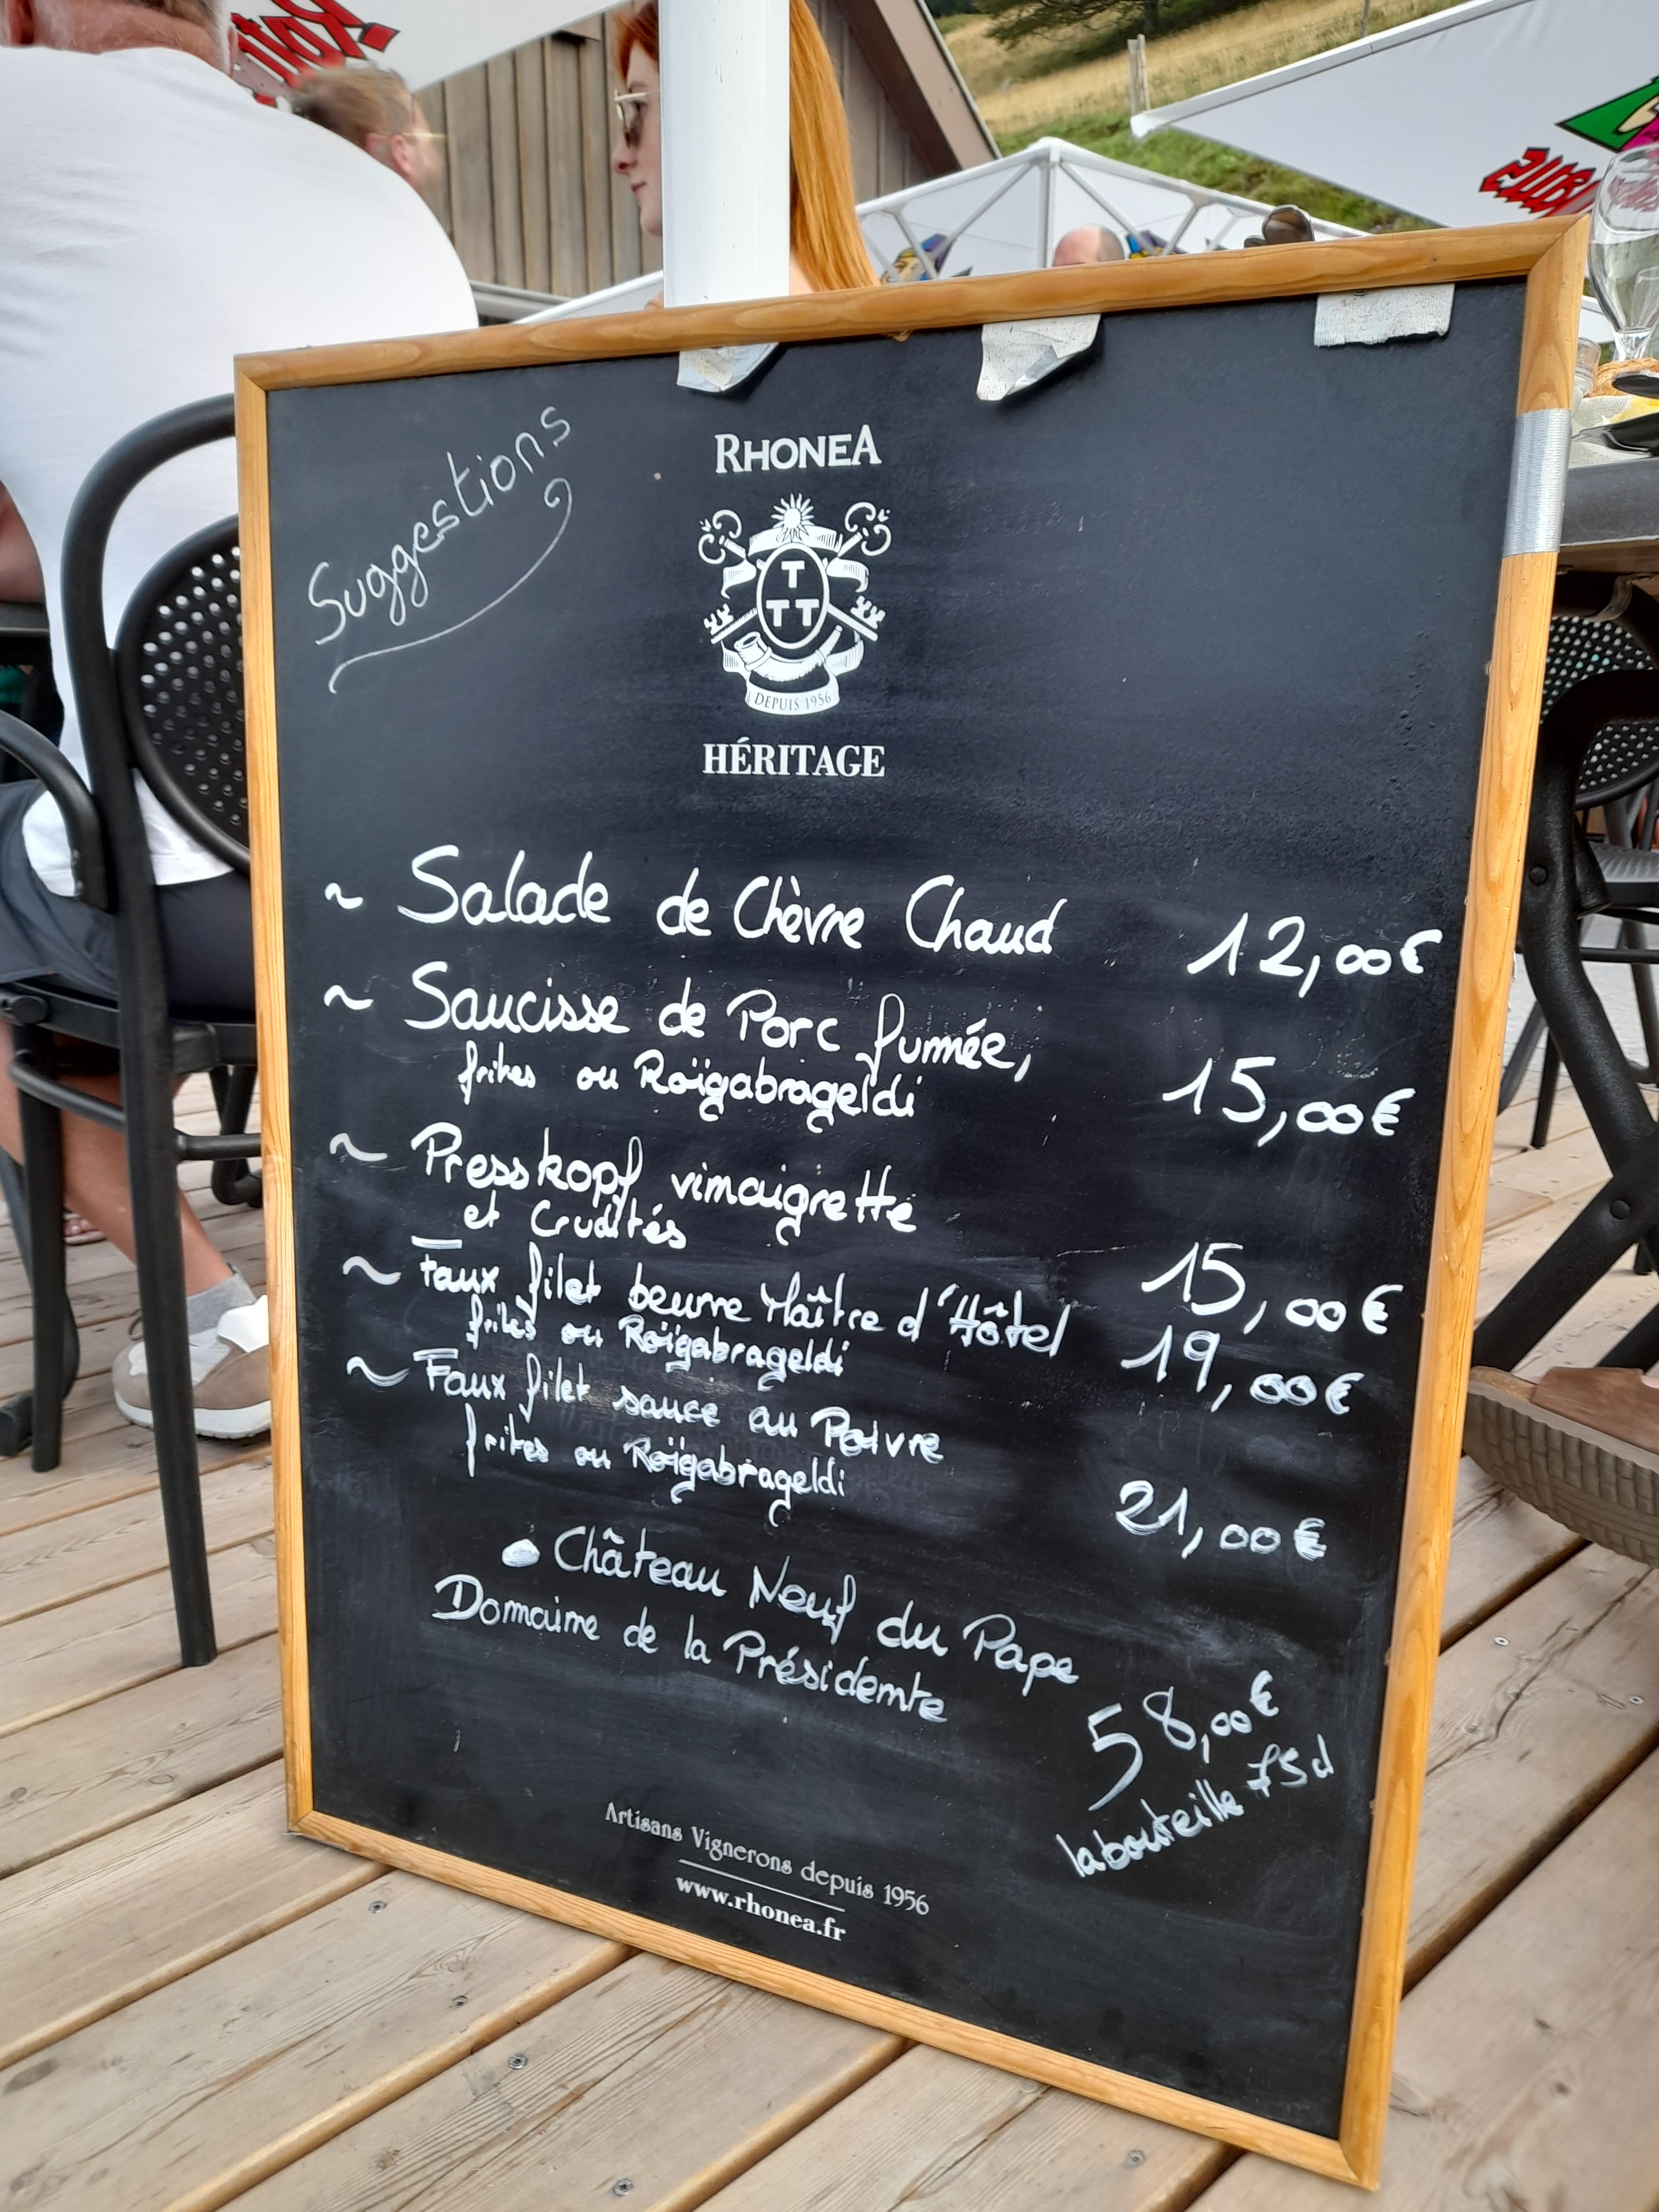 Suggestions
RHONEA
T
TT
DEPUIS 1956
HÉRITAGE
~ Salade de Chèvre Chaud 12,00€
~ Saucisse de Porc fumée,
frites ou Roïgabrageldi 15,00€
~ Presskopf vinaigrette
et Crudités 15,00€
~ Faux filet beurre Maître d'Hôtel
frites ou Roïgabrageldi 19,00€
~ Faux filet sauce au Poivre
frites ou Roïgabrageldi 21,00€
• Château Neuf du Pape
Domaine de la Présidente
58,00€
la bouteille 75cl
Artisans Vignerons depuis 1956
www.rhonea.fr